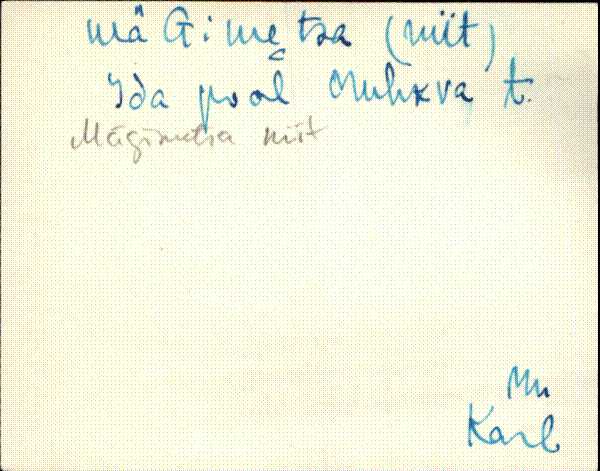 mäGimetsa (niit)
Ida pool Muhkva t.
Mägimetsa niit
Mu
Karl